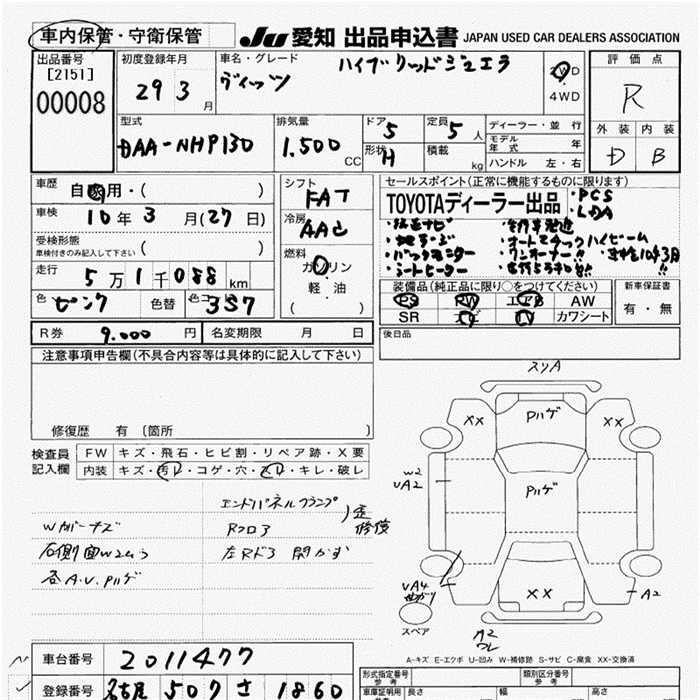 車内保管・守衛保管
JU 愛知 出品申込書 JAPAN USED CAR DEALERS ASSOCIATION
出品番号
[2151]
00008
初度登録年月
29 3 月
車名・グレード
ヴィッツ ハイブリッドジュエラ
2WD
4WD
評価点
R
外装 内装
D B
型式
DAA-NHP130
排気量
1.500 CC
ドア 5
形状 H
定員 5 人
積載 kg
ディーラー・並行
モデル年式 年
ハンドル 左・右
車歴
自 用・( )
車検
10 年 3 月 (27 日)
受検形態
車検付きのみ記入して下さい ( )
走行
5 万 1 千 088 km
色 ピンク 色替 色コード 3S7
シフト
FAT
冷房
AAC
燃料
ガソリン
軽・油
( )
セールスポイント(正常に機能するものに限ります)
TOYOTAディーラー出品 ・PCS
・LDA
・純正ナビ
・地デジ ・オートマチックハイビーム
・バックモニター ・ワンオーナー!!
・シートヒーター
装備品(純正品に限り○をつけてください)
PS PW エアB AW
SR ナビ TV カワシート
新車保証書
有・無
R券 9.000 円 名変期限 月 日
後日品
注意事項申告欄(不具合内容等は具体的に記入して下さい)
修復歴 有 〔箇所 〕
検査員記入欄
FW キズ・飛石・ヒビ割・リペア跡・X要
内装 キズ・汚レ・コゲ・穴・スレ・キレ・破レ
エンドパネルクランプ
Wガナーズ Rフロア 修復
右側面W2ムラ 左Rドア 開かず
各A.U.Pハゲ
スリA
XX Pハゲ XX
W2
UA2
Pハゲ
UA4
曲がり
XX
A2
スペア
A2
ワレ
A-キズ E-エクボ U-凹み W-補修跡 S-サビ C-腐食 XX-交換済
車台番号 2011477
登録番号 名古屋 507 さ 1860
形式指定番号
参考
類別区分番号
参考
車庫証明用
長さ 幅 高さ